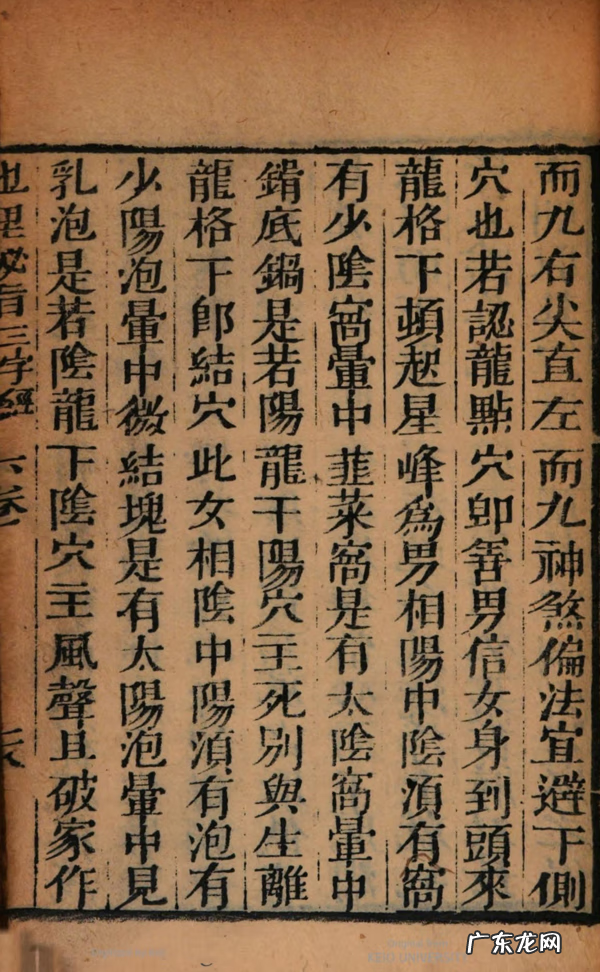 而九右尖直左而九神煞偏法宜避下側
穴也若認龍點穴卽善男信女身到頭來
龍格下頓起星峰爲男相陽中陰須有窩
有少陰窩暈中韮菜窩是有太陰窩暈中
鍋底鍋是若陽龍干陽穴主死別與生離
龍格下卽結穴此女相陰中陽須有泡有
少陽泡暈中微結塊是有太陽泡暈中見
乳泡是若陰龍下陰穴主風聲且破家作
地理秘旨三字經 六卷
广东龙网